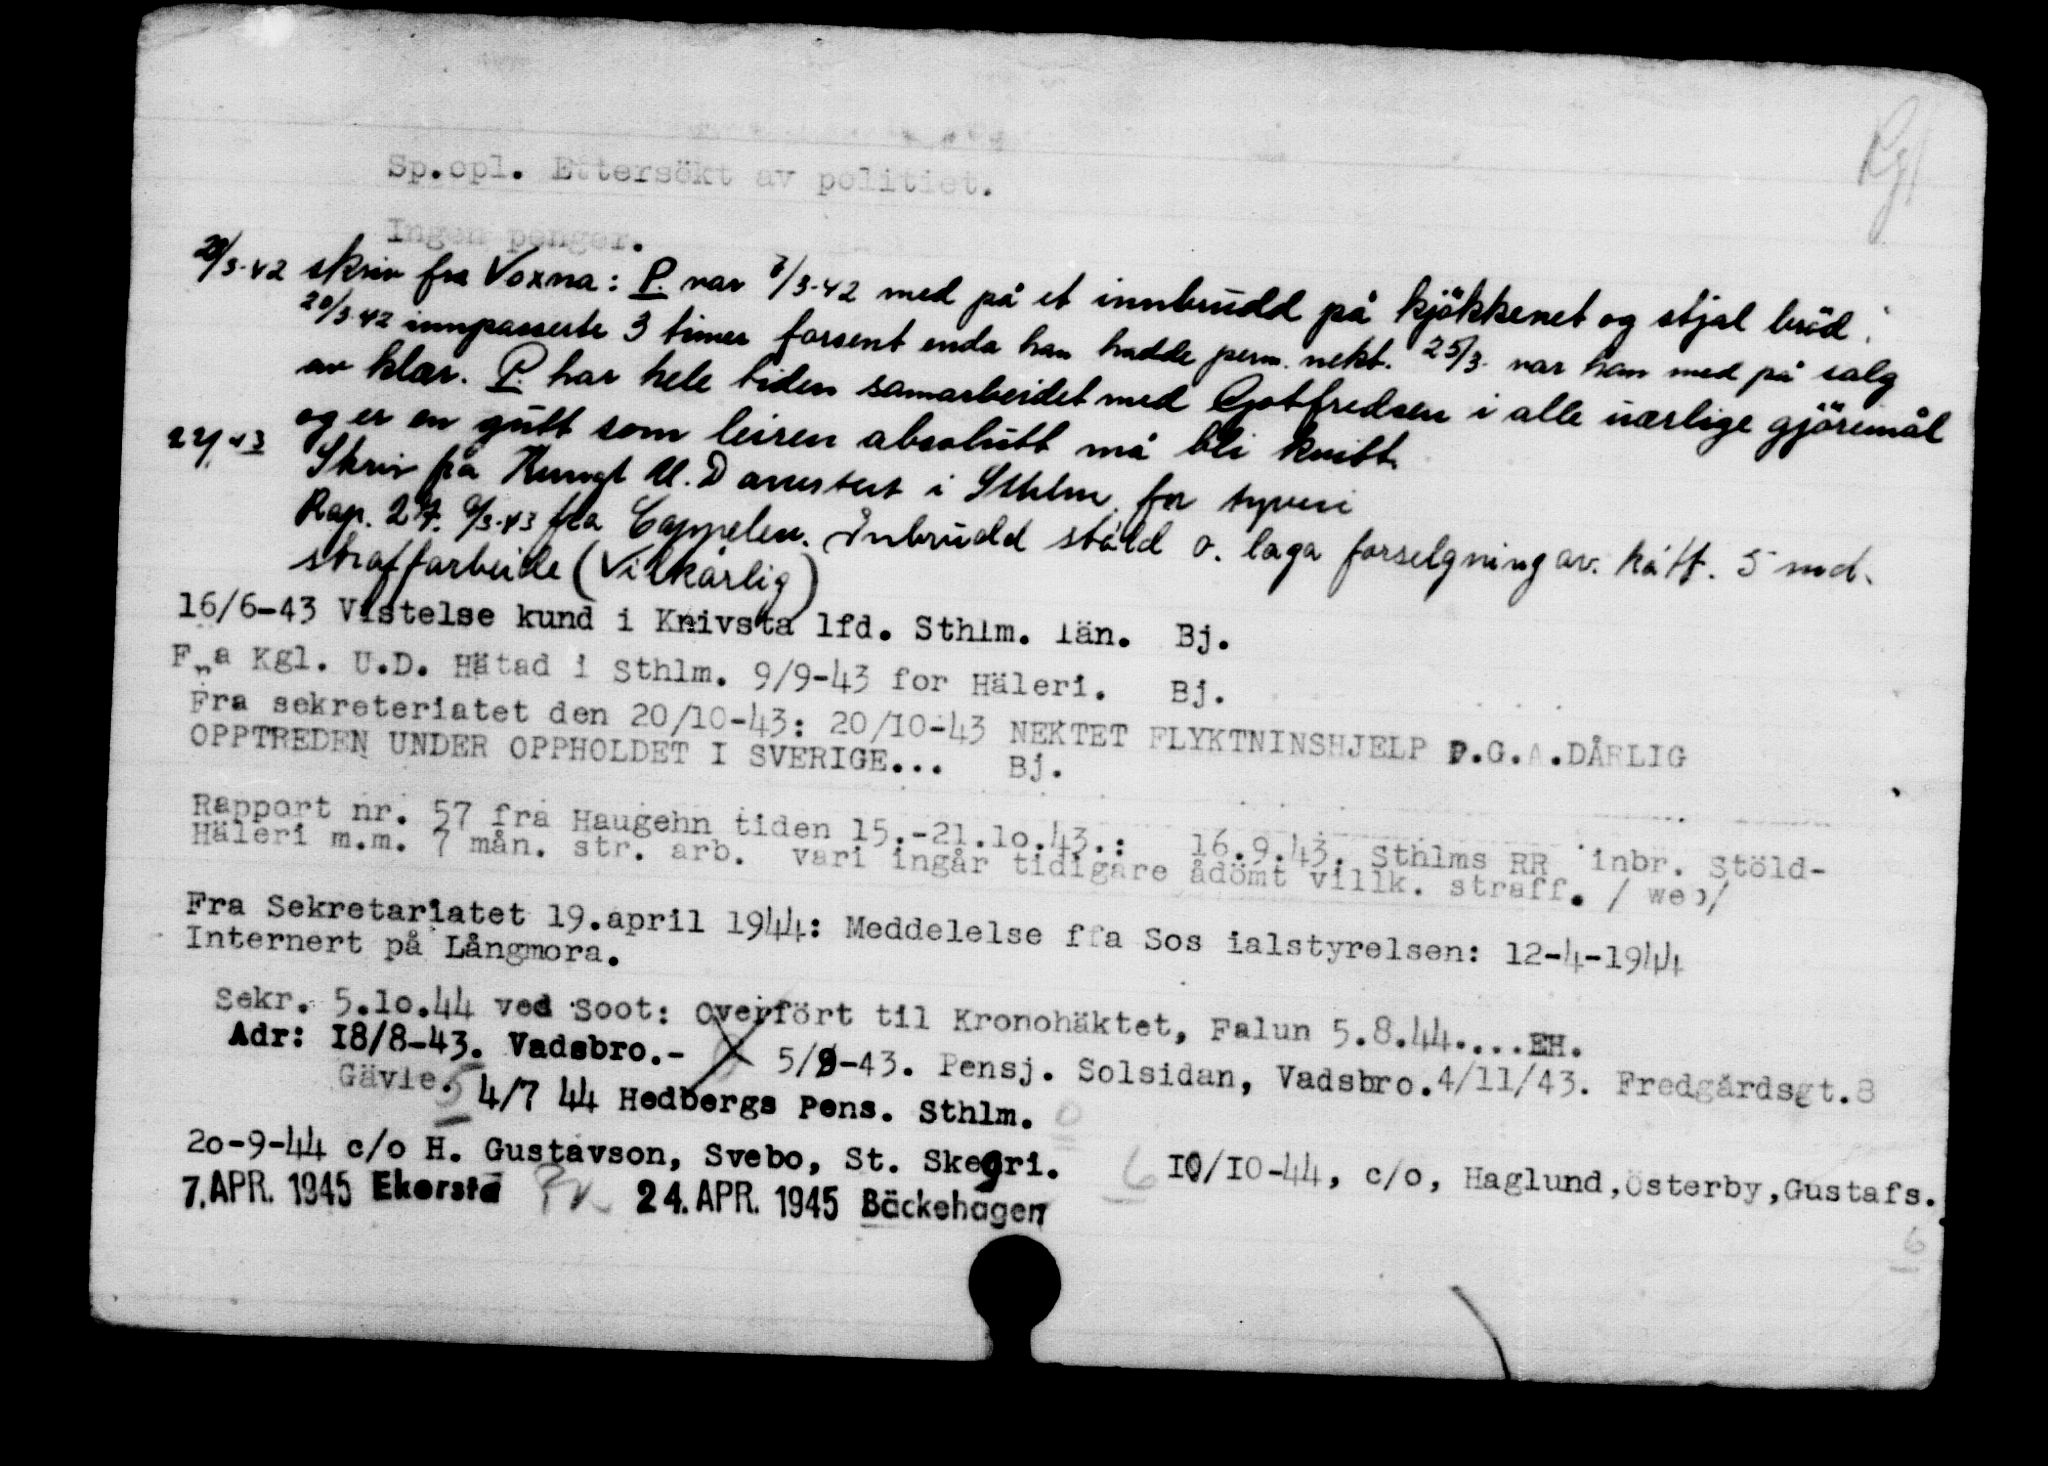 Rg/
Sp.opl. Ettersökt av politiet.
Ingen penger.
28/3-42 skriv fra Voxna: P. var 7/3-42 med på et innbrudd på kjökkenet og stjal bröd.
20/3-42 innpasserte 3 timer forsent enda han hadde perm. nekt. 25/3. var han med på salg
av klær. P. har hele tiden samarbeidet med Gotfredsen i alle uærlige gjöremål
og er en gutt som leiren absolutt må bli kvitt.
Skriv fra Kungl U.D arrestert i Sthlm. for tyveri
Rap. 27. fra Cappelen. Inbrudd stöld o. laga forselgning av. 5 md.
straffarbeide (Vilkårlig)
16/6-43 Vistelse kund i Knivsta lfd. Sthlm. län. Bj.
F„a Kgl. U.D. Hätad i Sthlm. 9/9-43 for Häleri. Bj.
Fra sekreteriatet den 20/10-43: 20/10-43 NEKTET FLYKTNINSHJELP P.G.A.DÅRLIG
OPPTREDEN UNDER OPPHOLDET I SVERIGE... Bj.
Rapport nr. 57 fra Haugehn tiden 15.-21.10.43.: 16.9.43. Sthlms RR inbr. Stöld-
Häleri m.m. 7 mån. str. arb. vari ingår tidigare ådömt villk. straff. / weo/
Fra Sekretariatet 19.april 1944: Meddelelse ffa Sos ialstyrelsen: 12-4-1944
Internert på Långmora.
Sekr. 5.10.44 ved Soot: Overfört til Kronohäktet, Falun 5.8.44....EH.
Adr: 18/8-43. Vadsbro.- 5/9-43. Pensj. Solsidan, Vadsbro.4/11/43. Fredgårdsgt.8
Gävle. 5 4/7 44 Hedbergs Pens. Sthlm. 0
20-9-44 c/o H. Gustavson, Svebo, St. Skegri. 6 10/10-44, c/o, Haglund,Österby,Gustafs.
7.APR. 1945 Ekersta 24.APR. 1945 Bäckehagen
6